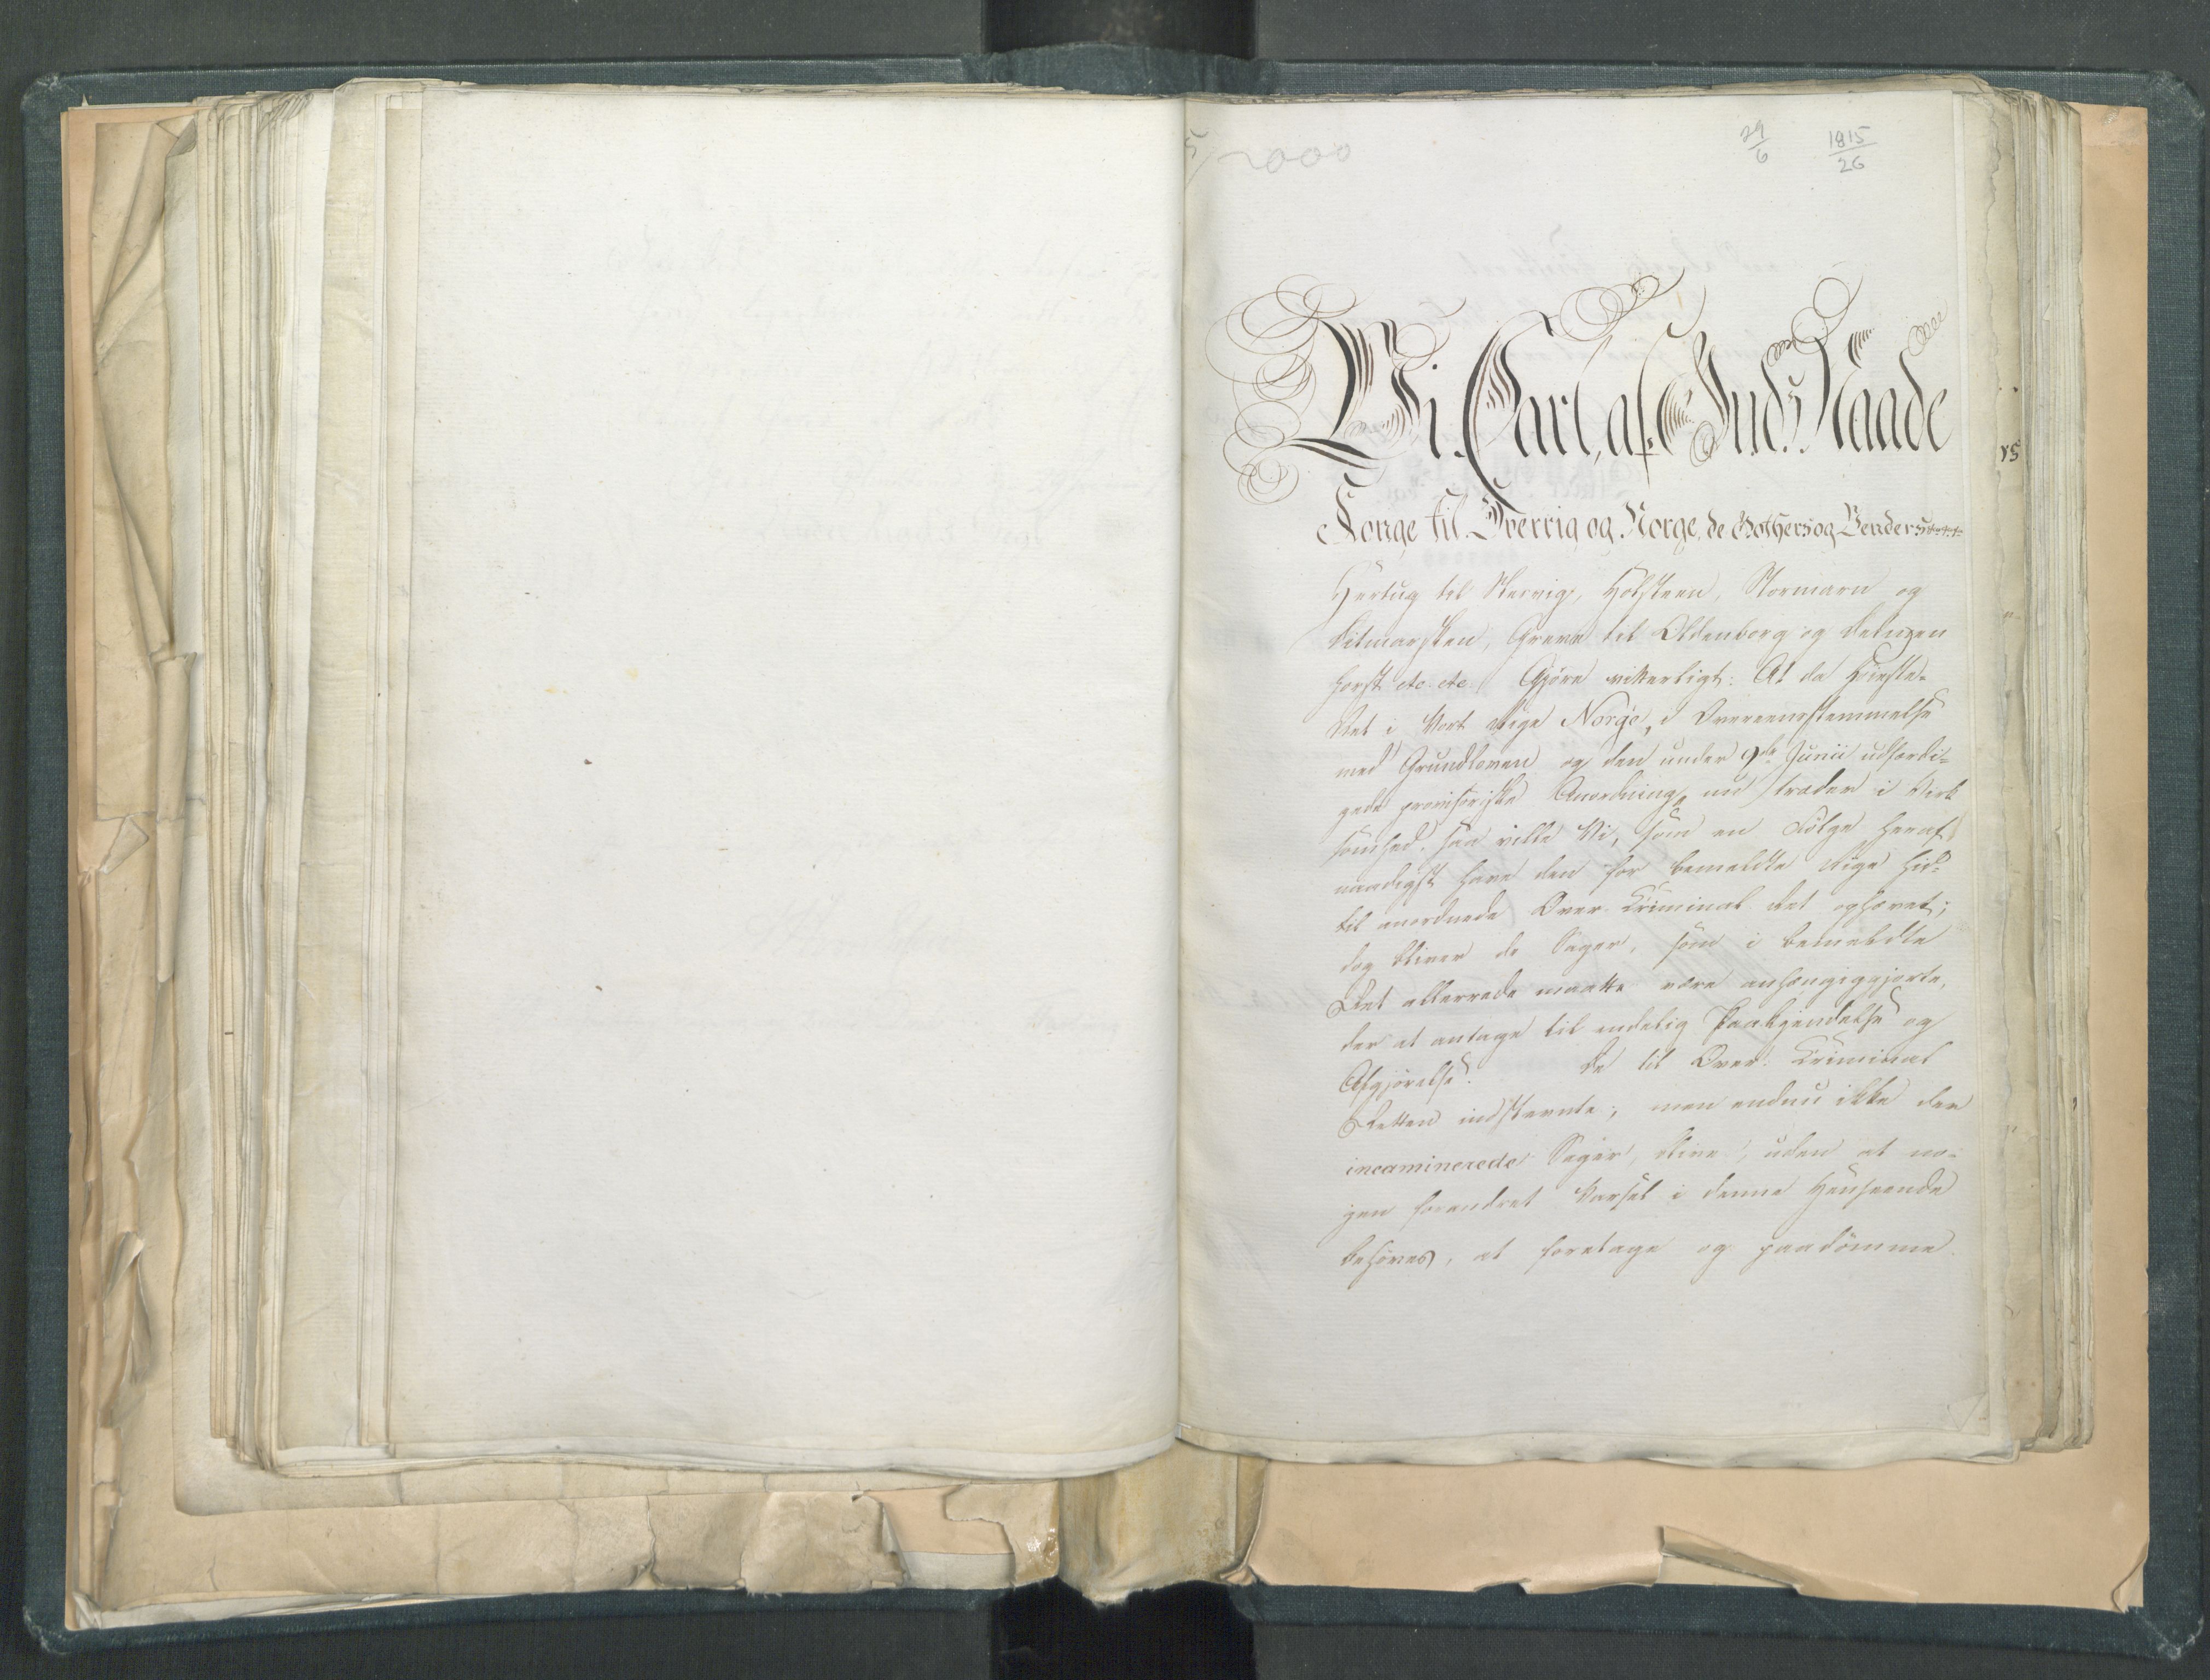 2000
29/6 1815/26
Vi Carl, af Guds Naade
Konge til Sverrig og Norge, de Gothers og Venders
Hertug til Slesvig, Holsteen, Stormarn og
Ditmarsken, Greve til Oldenborg og Delmen
horst etc. etc. Gjøre vitterligt: At da Høieste-
Ret i Vort Rige Norge, i Overeensstemmelse
med Grundloven og den under 9de Junii udfærdi-
gede provisoriske Anordning, nu træder i Virk
somhed, saa ville Vi, som en Følge heraf,
naadigst have den for bemeldte Rige hid-
til anordnede Over-Criminal Ret ophævet;
dog bliver de Sager, som i bemeldte
Ret allerrede maatte være anhængiggjorte,
der at antage til endelig Paakjendelse og
Afgjørelse. De til Over-Criminal
Retten indstevnte, men endnu ikke der
incaminerede Sager, blive, uden at no-
gen forandret Varsel i denne Henseende
behøves, at foretage og paadømme